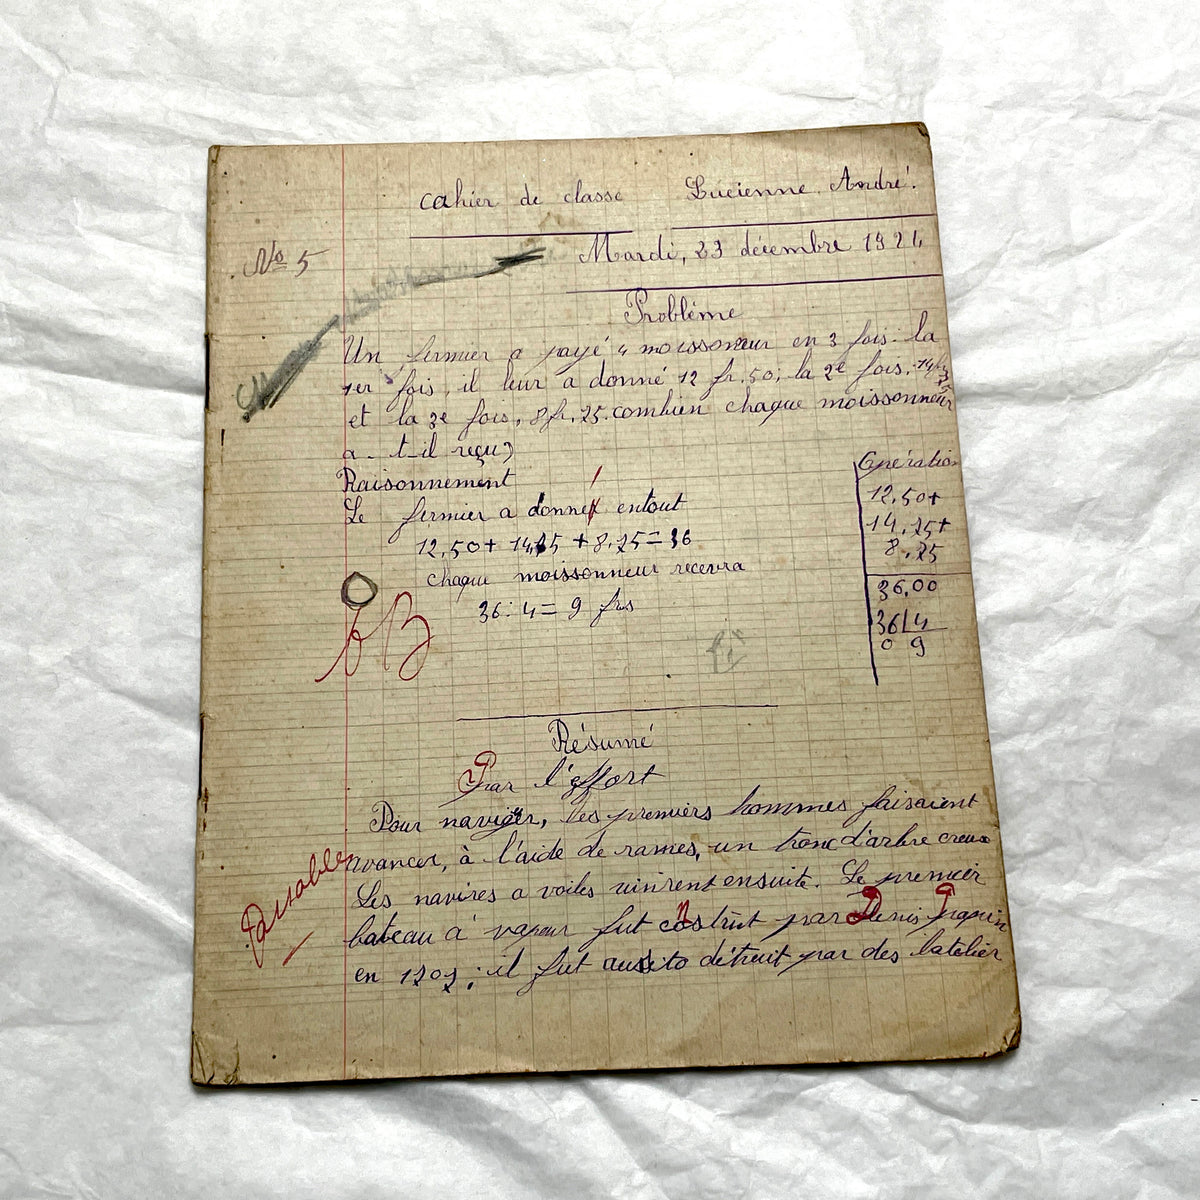 cahier de classe Lucienne André.
No 5
Mardi, 23 décembre 1924
Problème
Un fermier a payé 4 moissonneur en 3 fois. la
1er fois, il leur a donné 12 fr. 50; la 2e fois, 14 fr 75
et la 3e fois, 8 fr, 75. combien chaque moissonneur
a-t-il reçu?
Raisonnement
Le fermier a donné entout
12,50+ 14,75 + 8,75 = 36
chaque moissonneur recevra
36: 4 = 9 frs
Opération
12,50+
14,75+
8,75
36,00
36 4
0 9
TB
Résumé
Par l'effort
Pour naviguer, les premiers hommes faisaient
avancer, à l'aide de rames, un tronc d'arbre creux
Les navires a voiles vinrent ensuite. Le premier
bateau à vapeur fut construit par Denis Papin
en 1707; il fut aussito détruit par des batelier
Passable